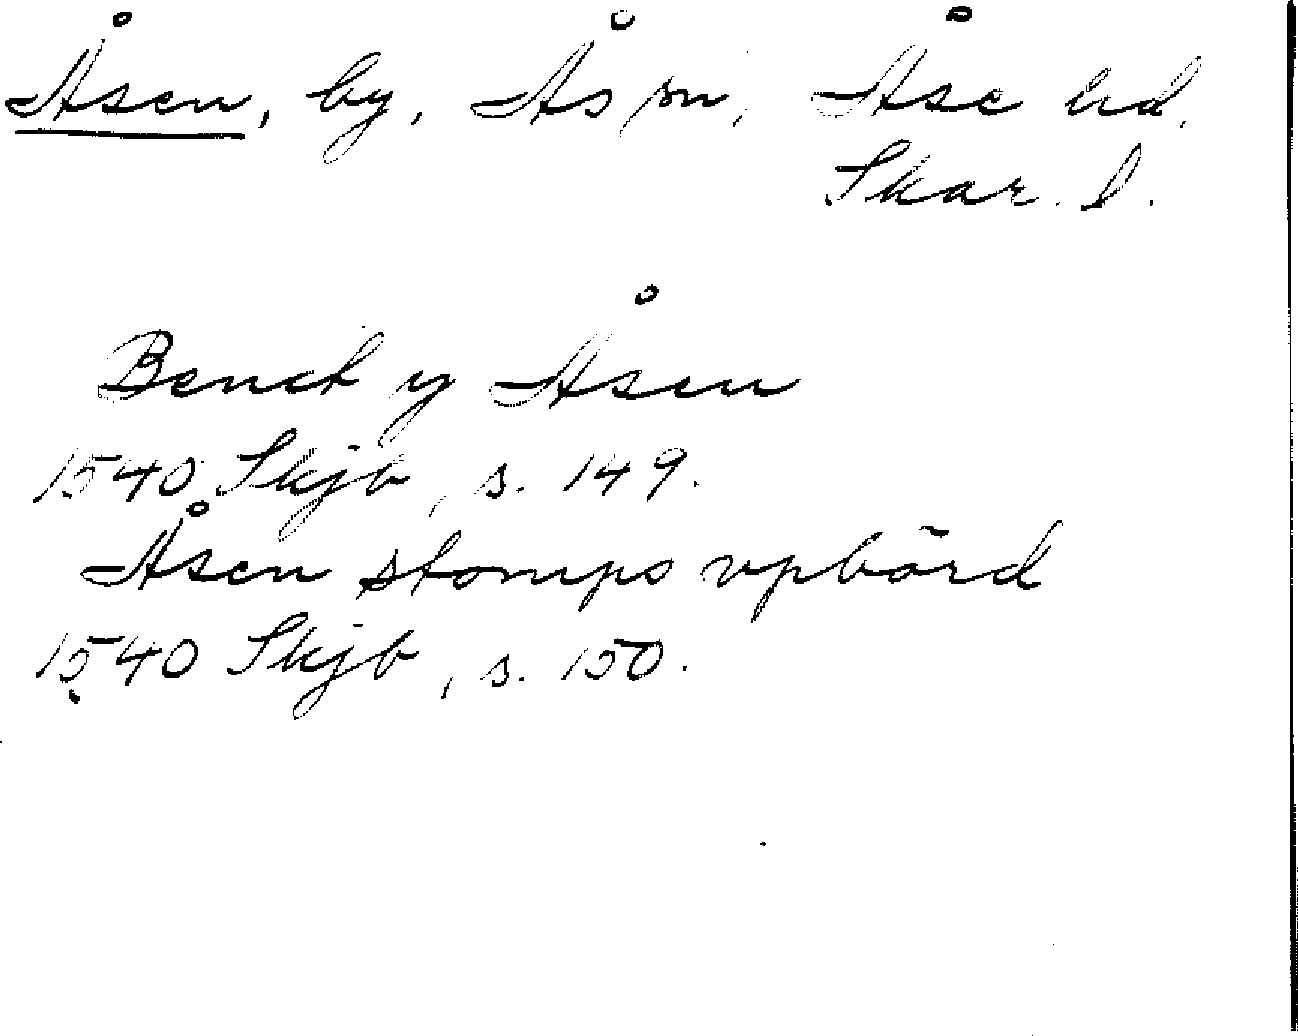 Åsen, by, Ås sn, Åse hd,
Skar. l.
Benct y Åsen
1540 Skjb, s. 149.
Åsen stomps vpbörd
1540 Skjb, s. 150.